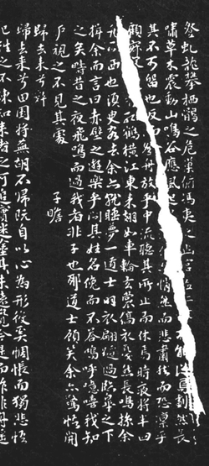 登虬龍攀栖鶻之危巢俯馮夷之幽宮蓋二客不能從焉劃然長
嘯草木震動山鳴谷應風起悄然而悲肅然而恐凜乎
其不可留也反而登舟放乎中流聽其所止而休焉時夜將半四
顧寂孤鶴橫江東来翅如車輪玄裳縞衣戛然長鳴掠余
舟而西也須臾客去余亦就睡夢一道士羽衣翩躚過臨皋之下
揖余而言曰赤壁之遊樂乎問其姓名俛而不答嗚呼噫嘻我知
之矣疇昔之夜飛鳴而過我者非子也耶道士顧笑余亦驚悟開
戶視之不見其處
子瞻
歸去来兮辞
歸去来兮田園將蕪胡不歸既自以心為形役奚惆悵而獨悲悟
已往之不諫知来者之可追實迷途其未遠覺今是而昨非舟遙